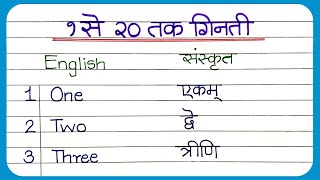 १ से २० तक गिनती
English संस्कृत
1 One एकम्
2 Two द्वे
3 Three त्रीणि